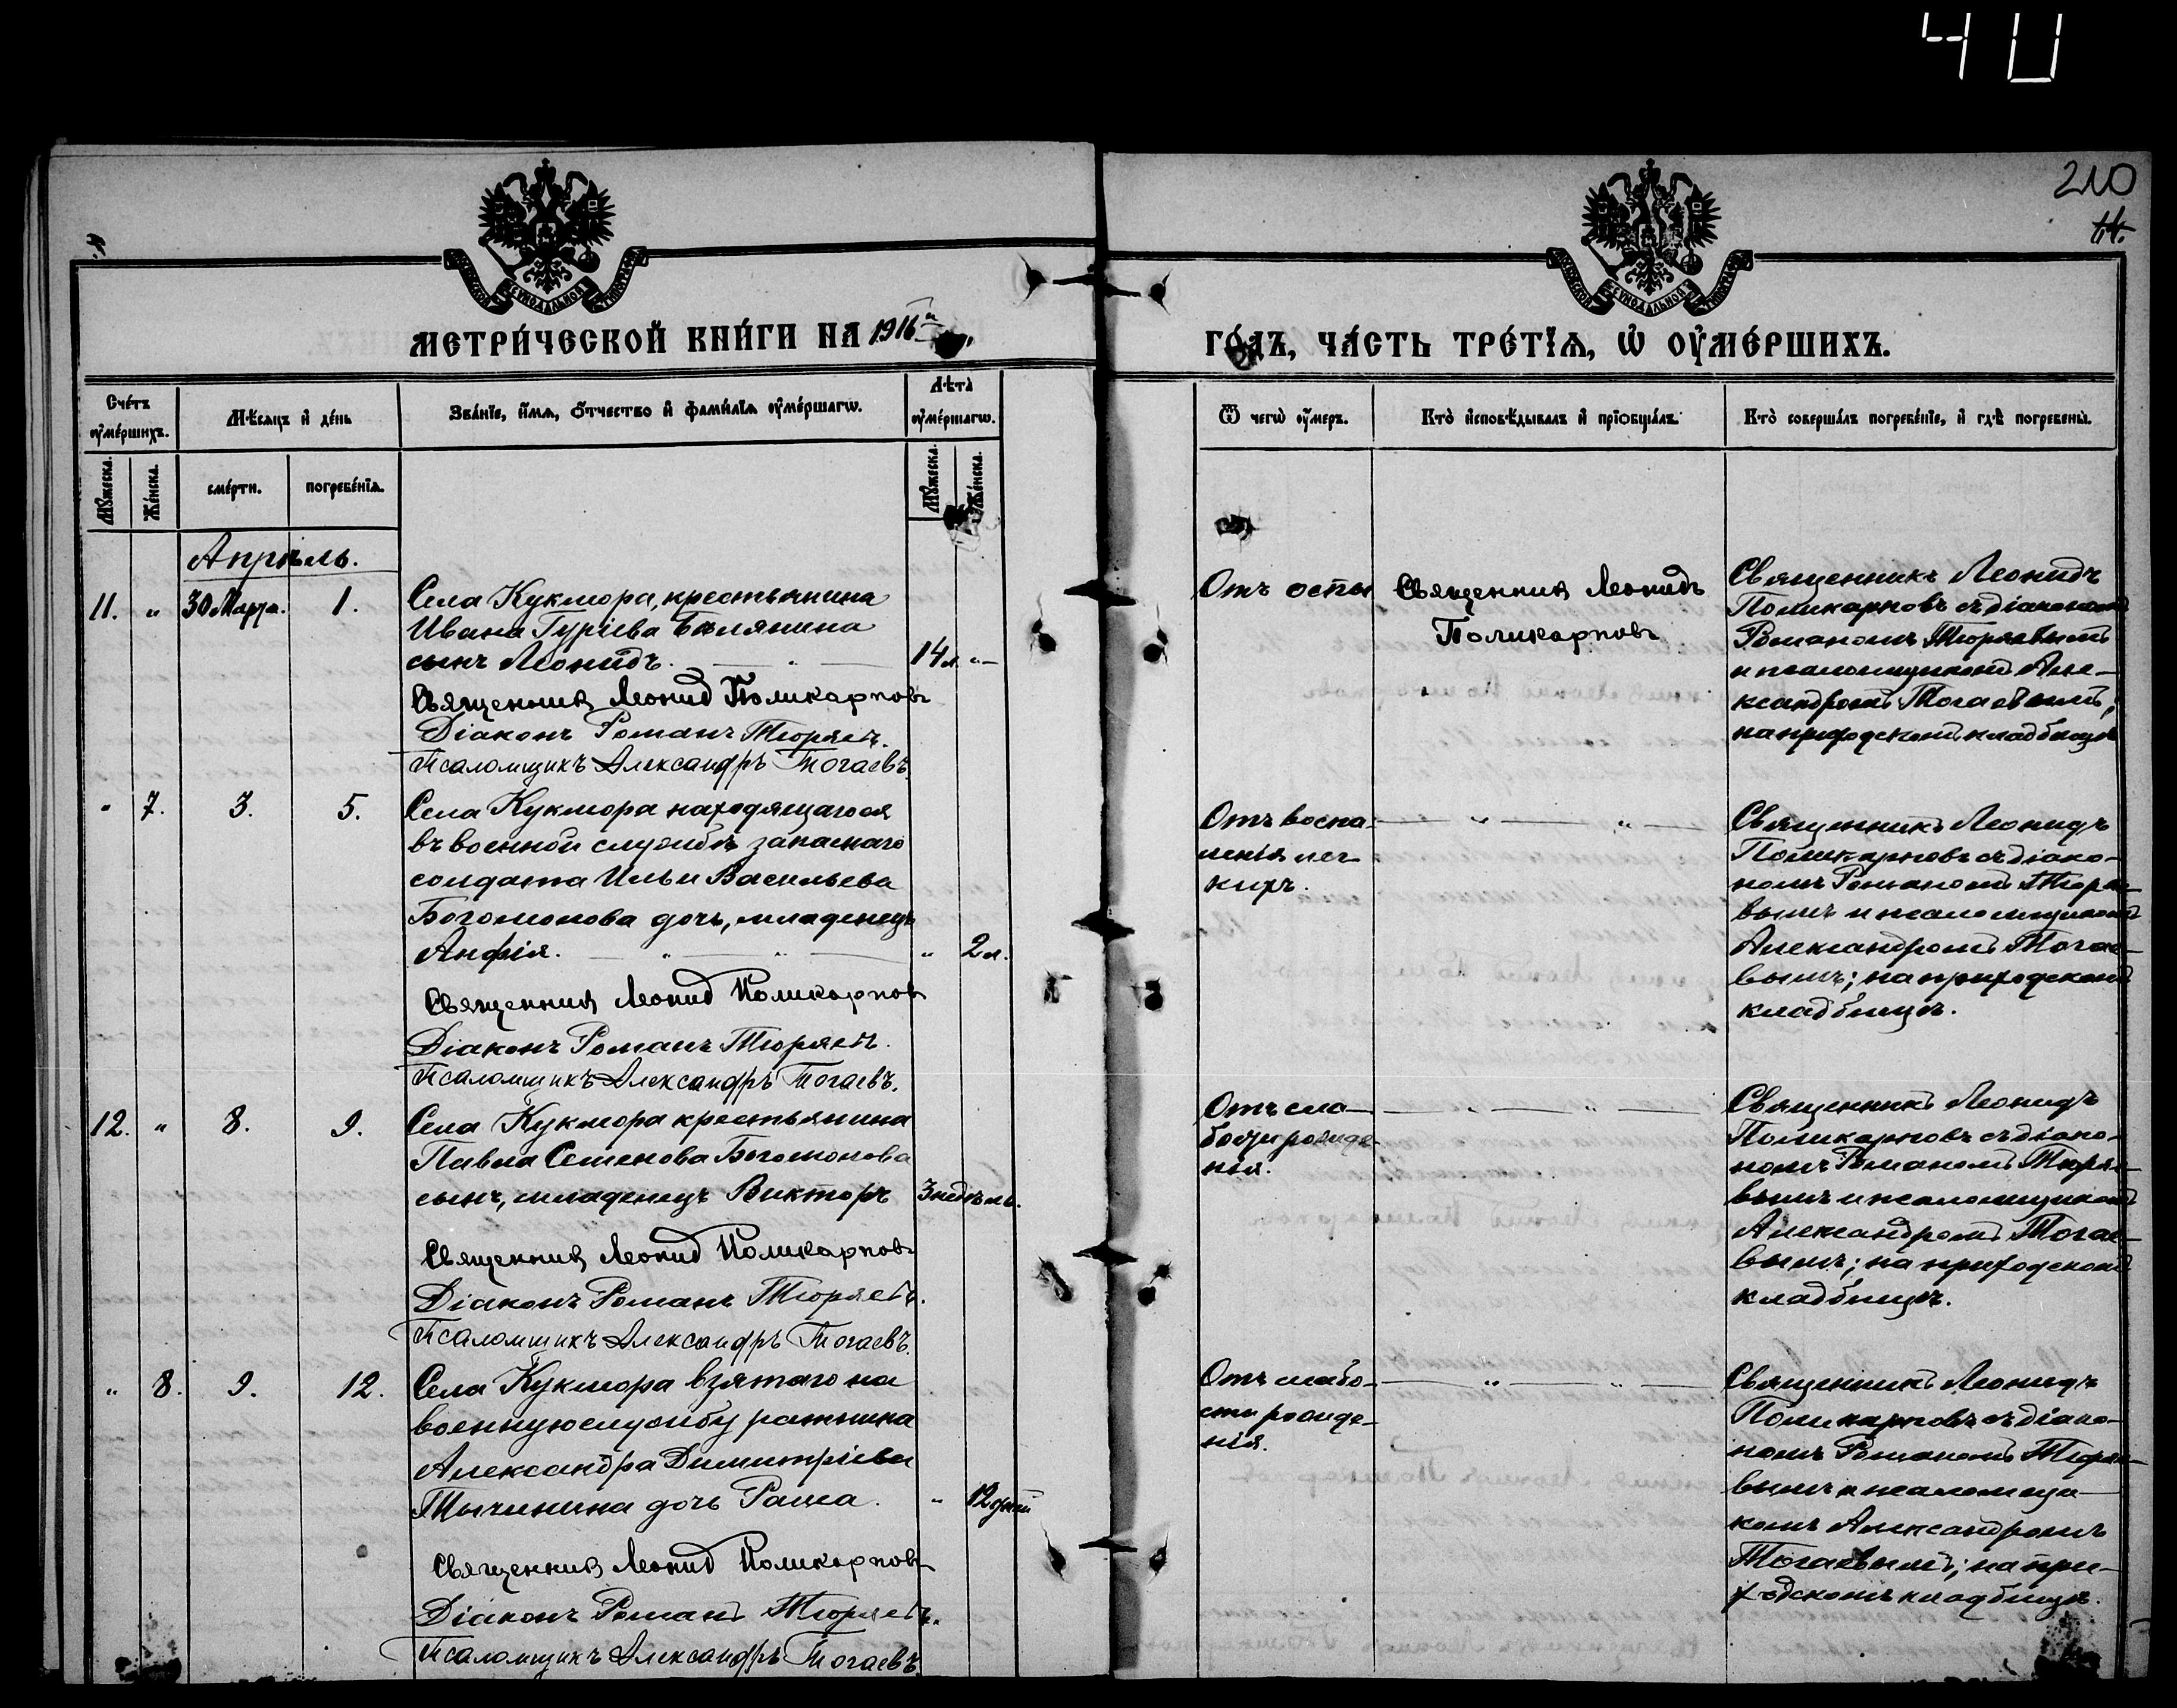 40
210
11.
МЕТРИ́ЧЕСКОЙ КНИ́ГИ НА 1916й
ГО́ДЪ, ЧА́СТЬ ТРЕ́ТЇѦ, Ѡ҆ ОУ҆МЕ́РШИХЪ.
Сче́тъ оу҆ме́ршихъ.
Мѣ́сяцъ и҆ де́нь
Зва́нїе, и҆́мя, ѻ҆́тчество и҆ фами́лїя оу҆ме́ршагѡ.
Лѣта̀ оу҆ме́ршагѡ.
Ѿ чегѡ̀ оу҆́меръ.
Кто̀ и҆сповѣ́дывалъ и҆ прїѡбща́лъ.
Кто̀ соверша́лъ погребе́нїе, и҆ гдѣ̀ погребены̀.
Мꙋ́жеска.
Же́нска.
сме́рти.
погребе́нїя.
Мꙋ́жеска.
Же́нска.
Апрѣль.
11. " 30 Марта. 1.
Села Кукмора, крестьянина
Ивана Гуріева Балянина
сынъ Леонидъ. — " — 14 л. "
Священникъ Леонид Поликарповъ
Діаконъ Романъ Тюряевъ.
Псаломщикъ Александръ Тогаевъ.
Отъ оспы
Священникъ Леонидъ
Поликарповъ
Священникъ Леонидъ
Поликарповъ съ діакономъ
Романомъ Тюряевымъ
и псаломщикомъ Але-
ксандромъ Тогаевымъ;
на приходскомъ кладбищѣ
" 7. 3. 5.
Села Кукмора находящагося
въ военной службѣ запаснаго
солдата Ильи Васильева
Богомолова дочь, младенецъ
Анфія. — " — " — " 2 л.
Священникъ Леонид Поликарповъ
Діаконъ Романъ Тюряевъ.
Псаломщикъ Александръ Тогаевъ.
Отъ воспа-
ленія лег-
кихъ.
— " — " —
Священникъ Леонидъ
Поликарповъ съ діако-
номъ Романомъ Тюряе-
вымъ и псаломщикомъ
Александромъ Тогае-
вымъ; на приходскомъ
кладбищѣ.
12. " 8. 9.
Села Кукмора крестьянина
Павла Семенова Богомолова
сынъ, младенецъ Викторъ 3 недѣль.
Священникъ Леонид Поликарповъ
Діаконъ Романъ Тюряевъ.
Псаломщикъ Александръ Тогаевъ.
Отъ сла-
бости рожде-
нія.
— " — " —
Священникъ Леонидъ
Поликарповъ съ діако-
номъ Романомъ Тюряе-
вымъ и псаломщикомъ
Александромъ Тогае-
вымъ; на приходскомъ
кладбищѣ.
" 8. 9. 12.
Села Кукмора взятаго на
военную службу ратника
Александра Димитріева
Тычинина дочь Раиса. " 12 дней
Священникъ Леонид Поликарповъ
Діаконъ Романъ Тюряевъ.
Псаломщикъ Александръ Тогаевъ.
Отъ слабо-
сти рожде-
нія.
— " — " —
Священникъ Леонидъ
Поликарповъ съ діако-
номъ Романомъ Тюряе-
вымъ и псаломщи-
комъ Александромъ
Тогаевымъ; на при-
ходскомъ кладбищѣ.